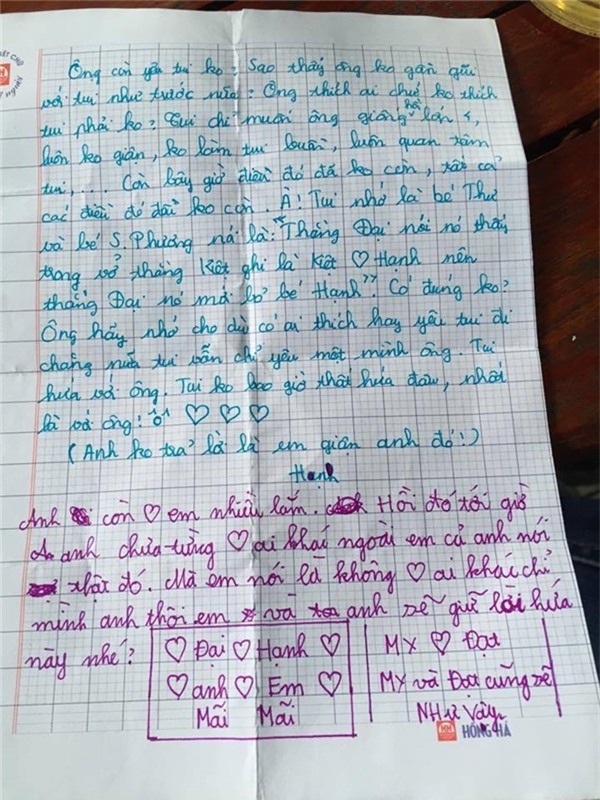 Ông còn yêu tui ko? Sao thấy ông ko gần gũi
với tui như trước nữa? Ông thích ai chứ ko thích
tui phải ko? Tui chỉ muốn ông giống hồi lớn 4,
luôn ko giận, ko làm tui buồn, luôn quan tâm
tui,... Còn bây giờ điều đó đã ko còn, tất cả
các điều đó đãi ko còn. À! Tui nhớ là bé Thư
và bé S. Phương nói là: "Thằng Đại nói nó thấy
trong vở thằng Kiệt ghi là Kiệt ♡ Hạnh nên
thằng Đại nó mới bỏ bé Hạnh". Có đúng ko?
Ông hãy nhớ cho dù có ai thích hay yêu tui đi
chăng nữa tui vẫn chỉ yêu một mình ông. Tui
hứa với ông. Tui ko bao giờ thất hứa đâu, nhất
là với ông! ô^ ♡ ♡ ♡
(Anh ko trả lời là em giận anh đó!)
Hạnh
Anh còn ♡ em nhiều lắm. Hồi đó tới giờ
anh chưa từng ♡ ai khác ngoài em cả anh nói
thật đó. Mà em nói là không ♡ ai khác chỉ
mình anh thôi em và anh sẽ giữ lời hứa
này nhé?
♡ Đại ♡ Hạnh ♡
♡ anh ♡ Em ♡
Mãi Mãi
MX ♡ Đạt
MX và Đạt cũng sẽ
NHư Vậy
HỒNG HÀ